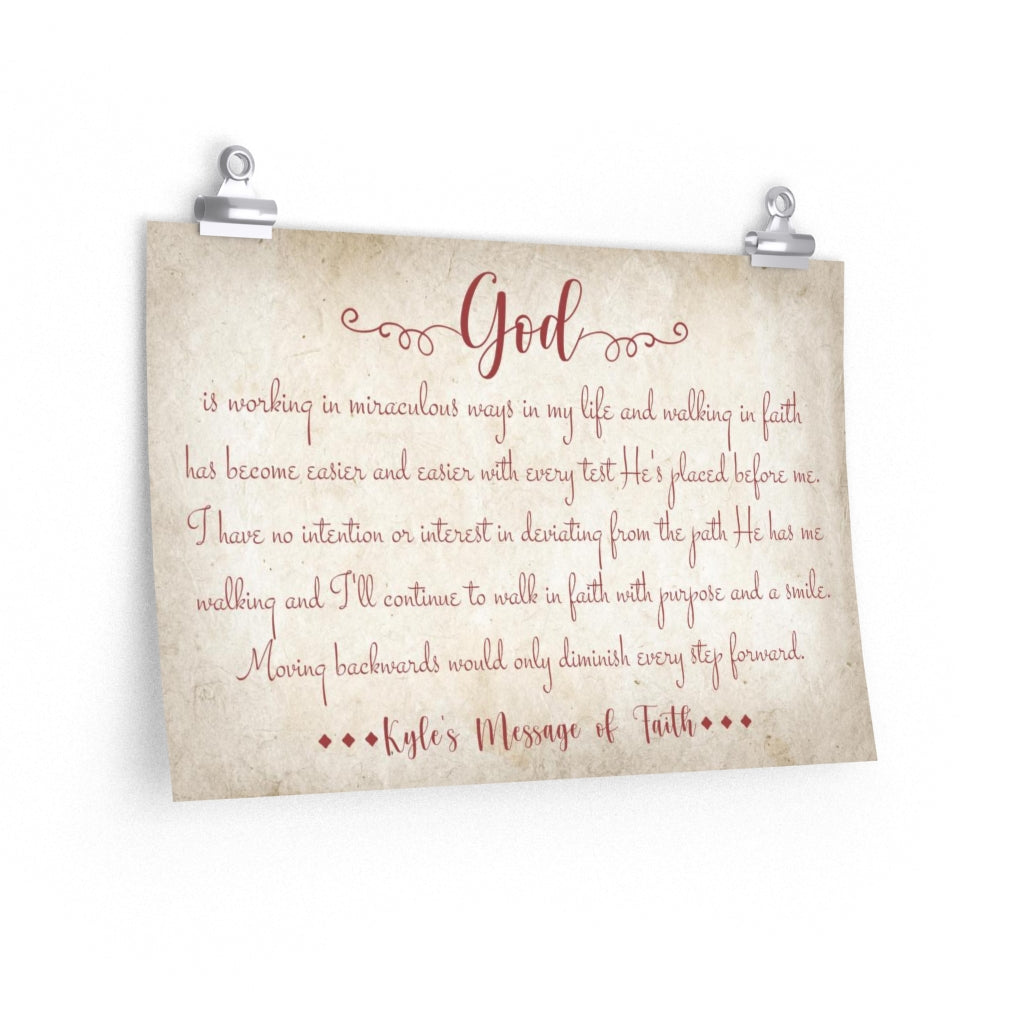 God
is working in miraculous ways in my life and walking in faith
has become easier and easier with every test He's placed before me.
I have no intention or interest in deviating from the path He has me
walking and I'll continue to walk in faith with purpose and a smile.
Moving backwards would only diminish every step forward.
◆ ◆ ◆Kyle's Message of Faith◆ ◆ ◆